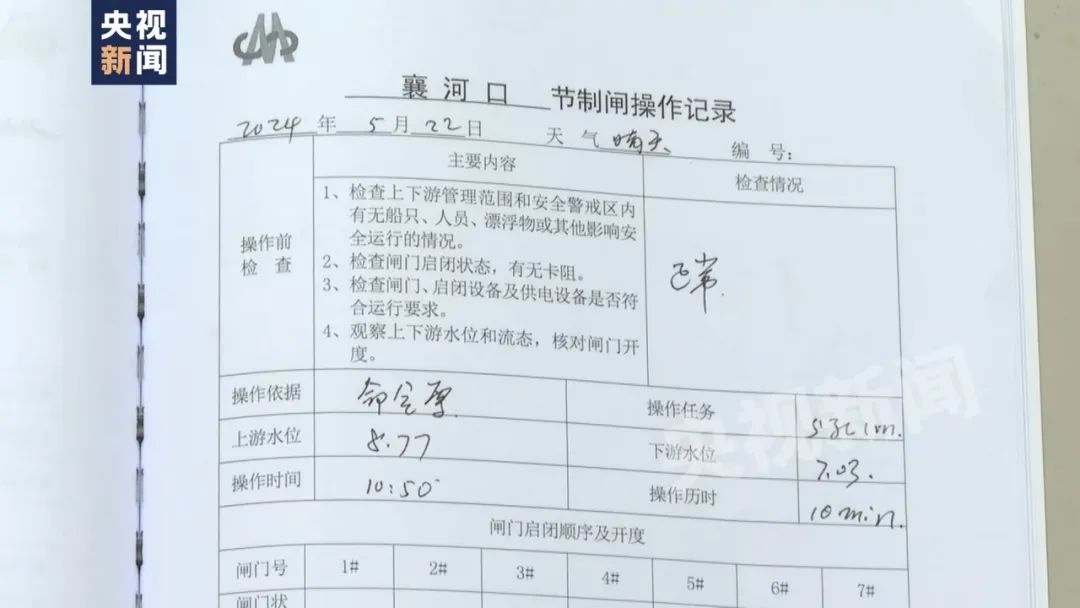 央视
新闻
襄河口 节制闸操作记录
2024 年 5 月 22 日 天气 晴天 编号：
主要内容 检查情况
操作前
检查
1、检查上下游管理范围和安全警戒区内
有无船只、人员、漂浮物或其他影响安
全运行的情况。
2、检查闸门启闭状态，有无卡阻。
3、检查闸门、启闭设备及供电设备是否符
合运行要求。
4、观察上下游水位和流态，核对闸门开
度。
正常
操作依据 操作任务
上游水位 8.77 下游水位 7.03.
操作时间 10:50 操作历时 10min.
闸门启闭顺序及开度
闸门号 1# 2# 3# 4# 5# 6# 7#
闸门状
央视新闻